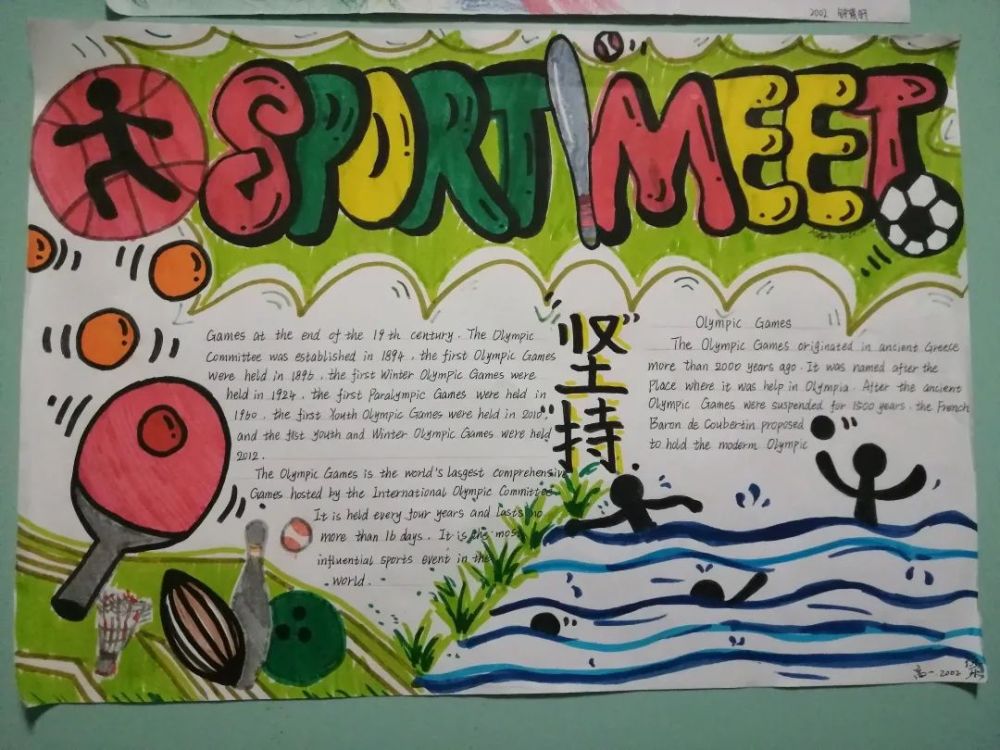 2002
SPORT MEET
坚持
Olympic Games
The Olympic Games originated in ancient Greece
more than 2000 years ago. It was named after the
Place where it was help in Olympia. After the ancient
Olympic Games were suspended for 1500 years. the French
Baron de Coubertin proposed
to hold the moderm Olympic
Games at the end of the 19th century. The Olympic
Committee was established in 1894. the first Olympic Games
were held in 1896. the first Winter Olympic Games were
held in 1924. the first Paralympic Games were held in
1960. the first Youth Olympic Games were held in 2010,
and the fist Youth and Winter Olympic Games were held
2012.
The Olympic Games is the world's lasgest comprehensive
Games hosted by the International Olympic Committee.
It is held every four years and lasts no
more than 16 days. It is the most
influential sports event in the
world.
高一.2002